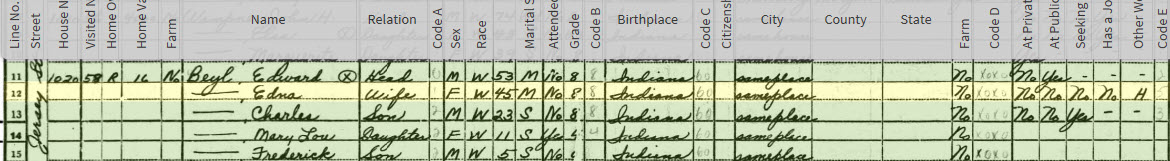 Line No. Street House N Visited N Home O Home Va Farm Name Relation Code A Sex Race Marital S Attended Grade Code B Birthplace Code C Citizens City County State Farm Code D At Privat At Public Seeking Has a Jo Other W Code E
11 Jersey St 1020 58 R 16 No Beyl, Edward Ⓧ Head M W 53 M No 8 8 Indiana 60 sameplace No XOXO No Yes - - -
12 —, Edna Wife F W 45 M No 8 8 Indiana 60 sameplace No XOXO No No No No H 5
13 —, Charles Son M W 23 S No 8 8 Indiana 60 sameplace No XOXO No No Yes - -
14 —, Mary Lou Daughter F W 11 S Yes Indiana 60 sameplace No XOXO
15 —, Frederick Son M W 5 S No Indiana 60 sameplace No XOXO